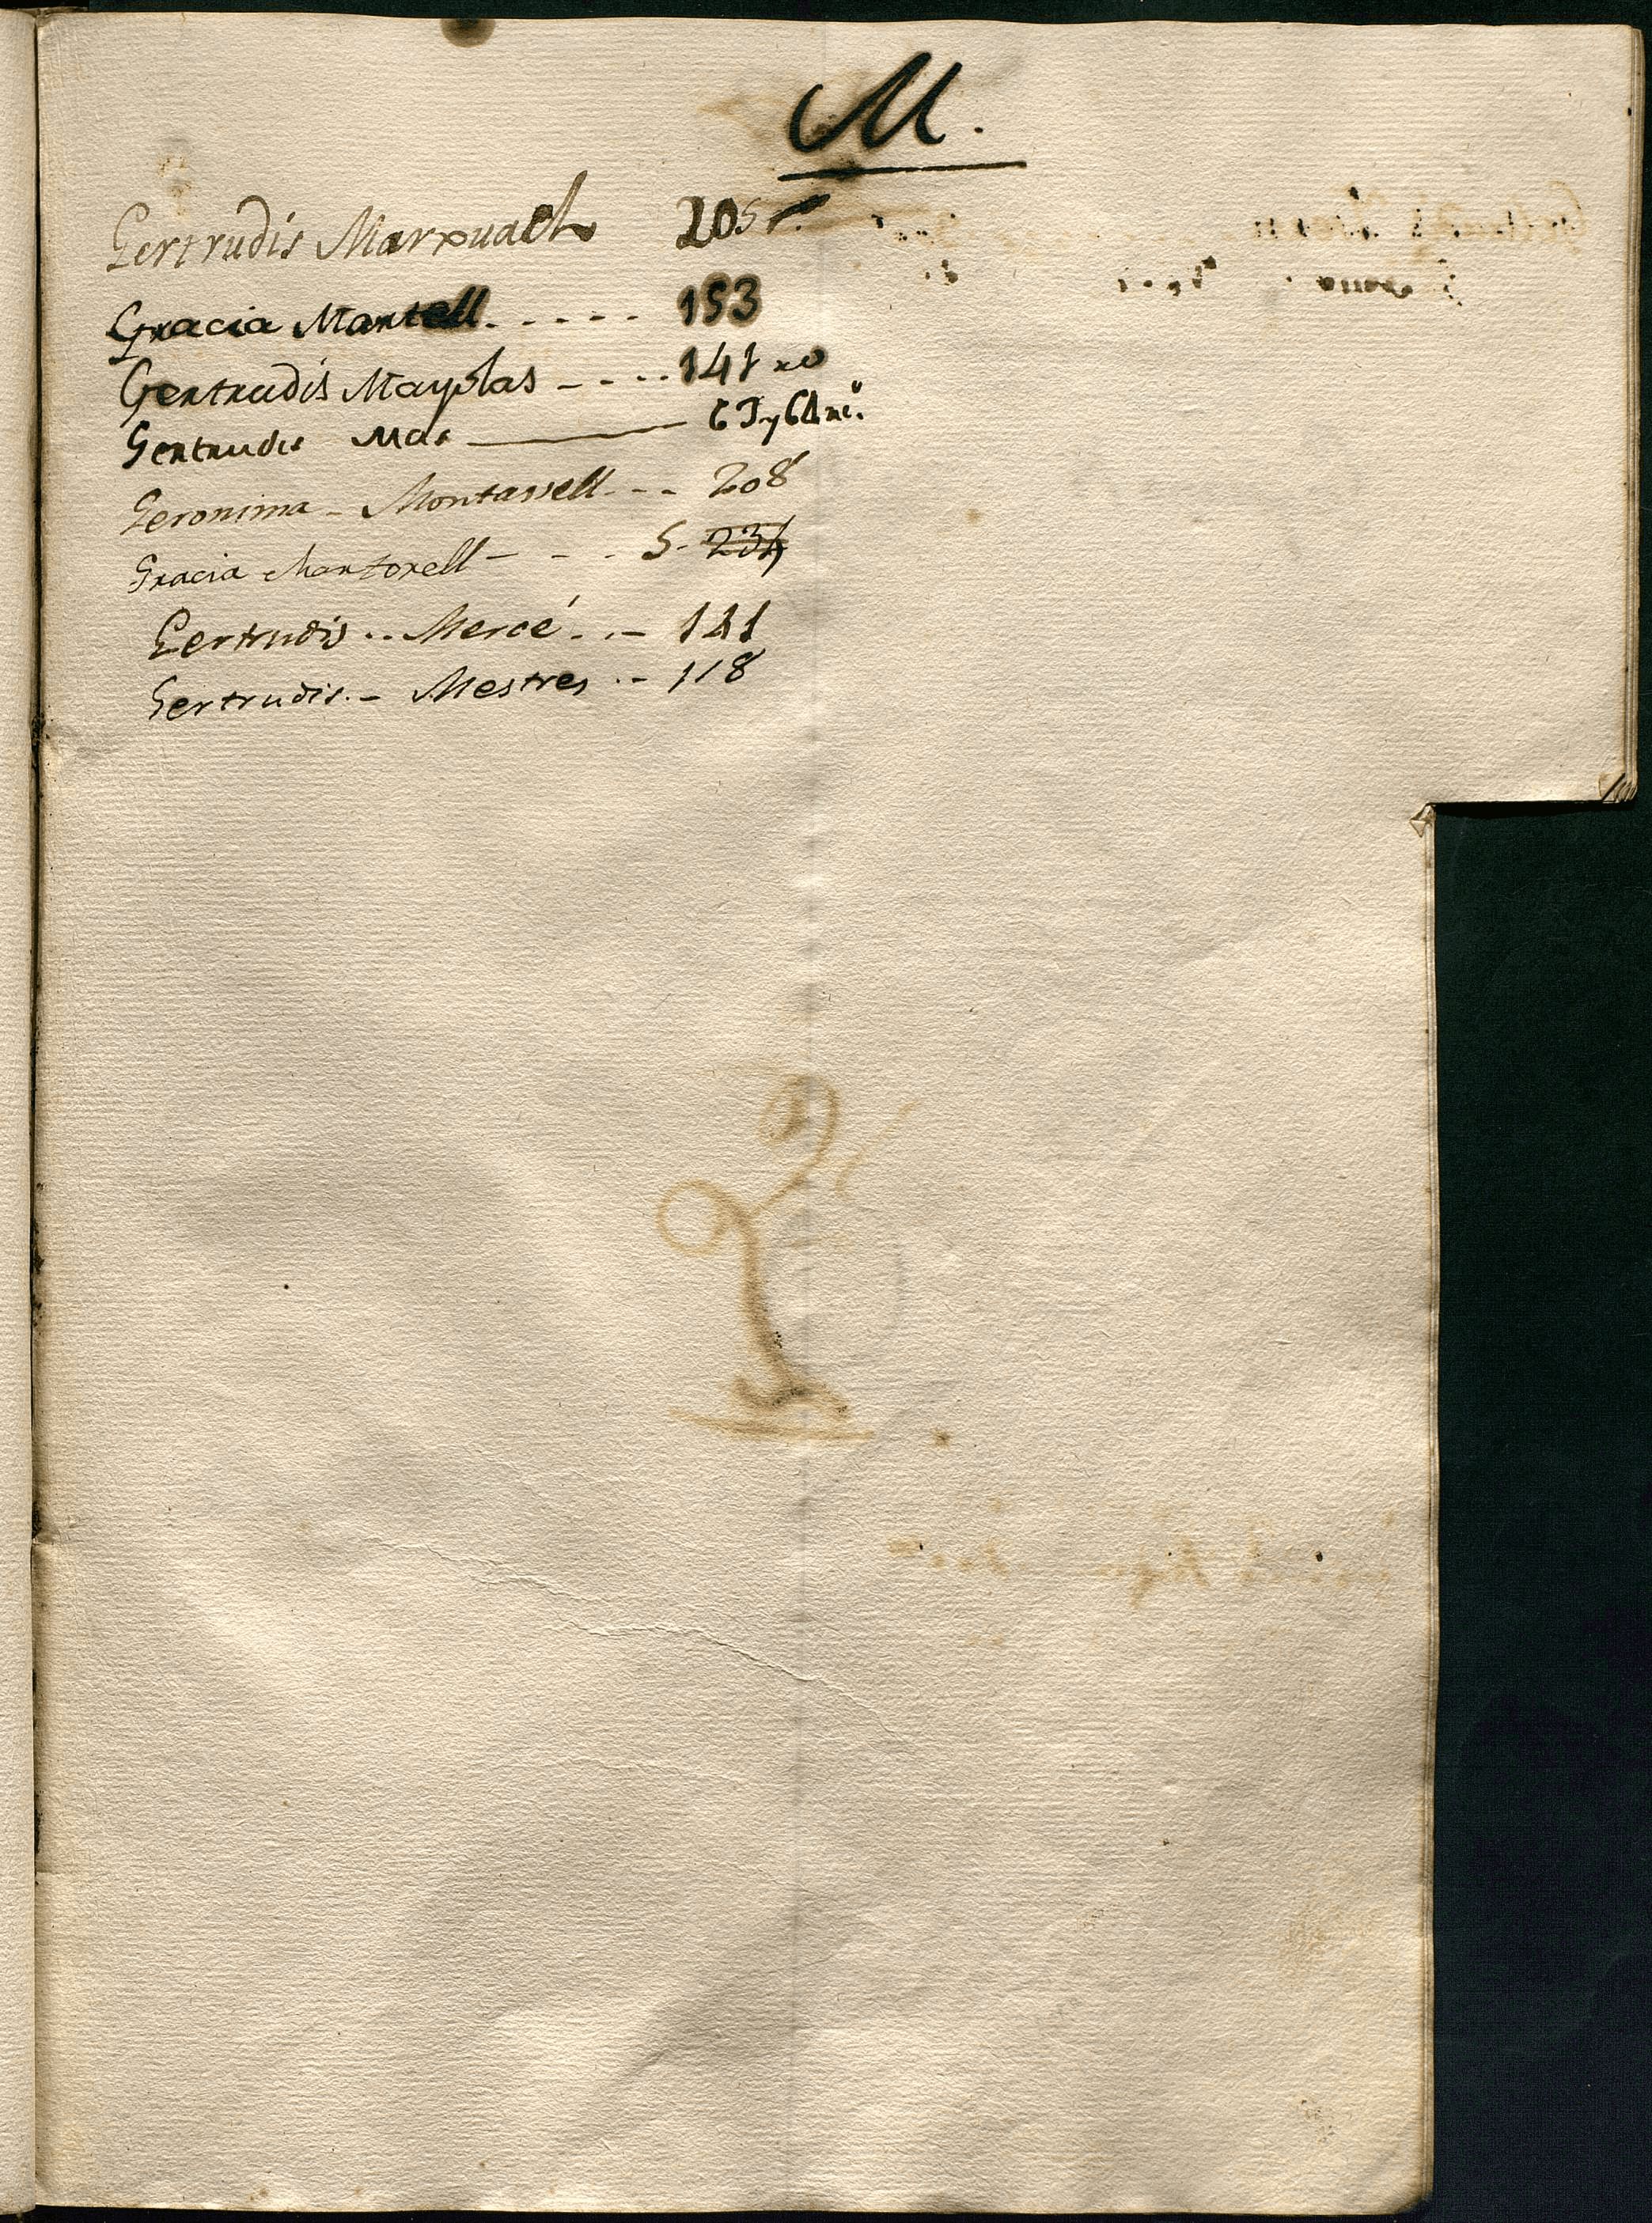 M.
Gertrudis Marxuach 205
Gracia Martell. - - - - - 153
Gertrudis Mayplas - - - - 141 ro
Gertrudis Mas
Geronima - Montassell - - - 208
Gracia Martorell - - - - 5 - 234
Gertrudis .. Mercé . - - 141
Gertrudis. - Mestres . - 118